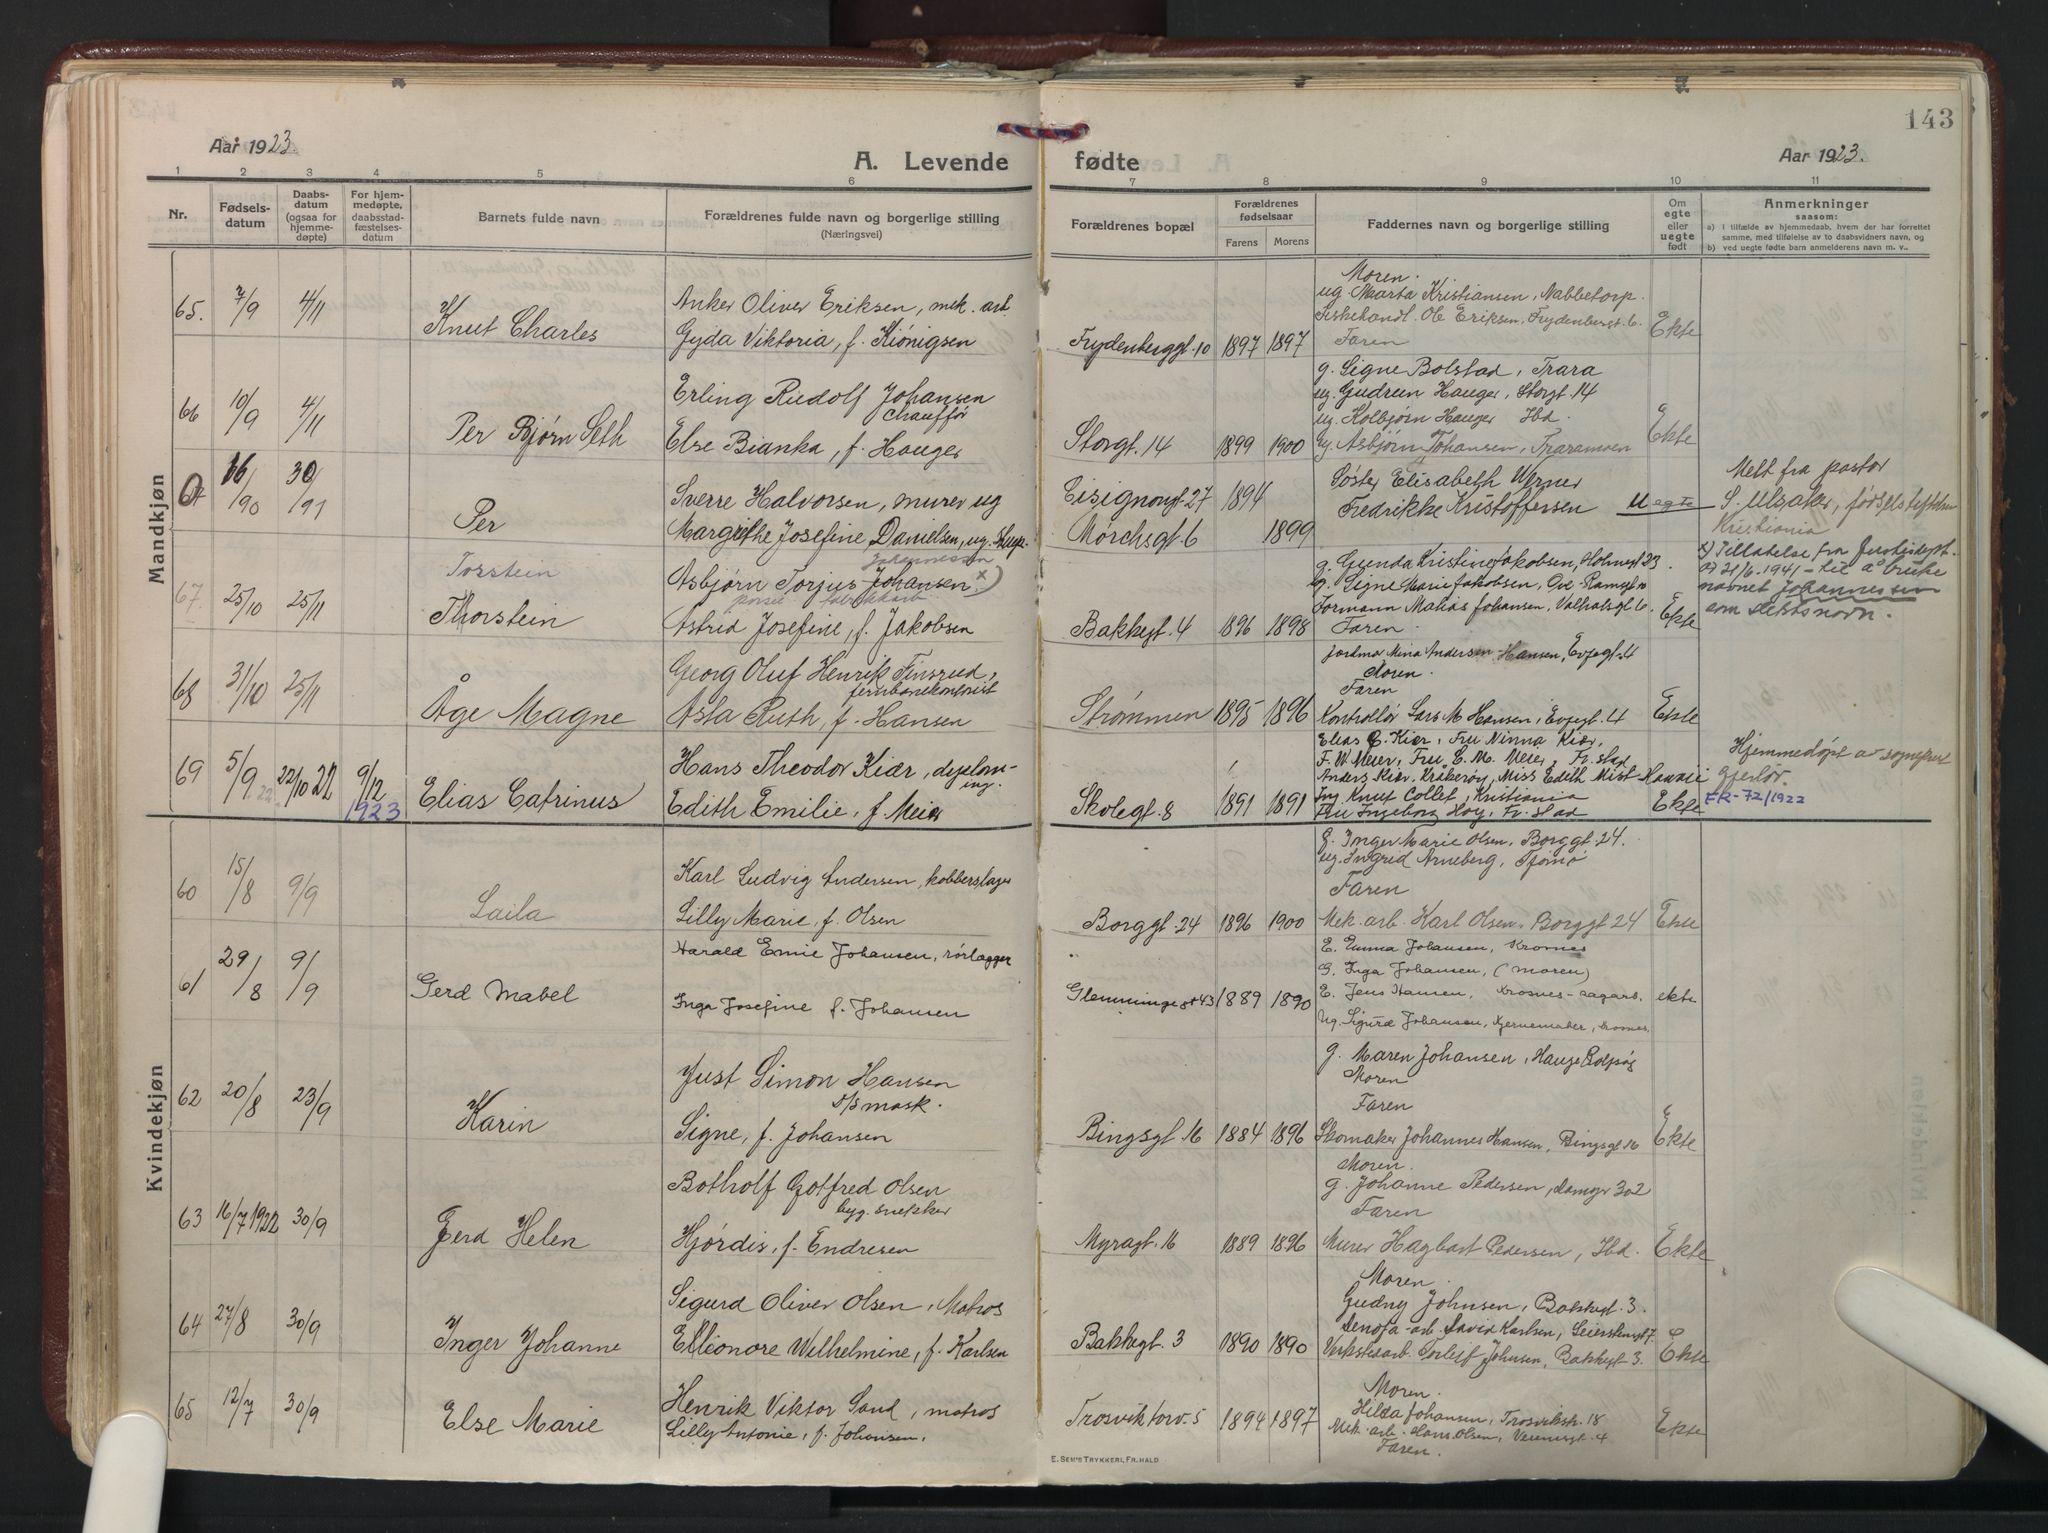 143
Aar 1923.
A. Levende fødte
Aar 1923.
1 2 3 4 5 6 7 8 9 10 11
Nr.
Fødsels-
datum
Daabs-
datum
(ogsaa for
hjemme-
døpte)
For hjem-
medøpte,
daabsstad-
fæstelses-
datum
Barnets fulde navn
Forældrenes fulde navn og borgerlige stilling
(Næringsvei)
Forældrenes bopæl
Forældrenes
fødselsaar
Farens Morens
Faddernes navn og borgerlige stilling
Om
egte
eller
uegte
født
Anmerkninger
saasom:
a) I tilfælde av hjemmedaab, hvem der har forrettet
samme, med tilføielse av to daabsvidners navn, og
b) ved uegte fødte barn anmelderens navn m. v..
Mandkjøn
65. 7/9 4/11 Knut Charles
Anker Oliver Eriksen, mek. arb.
Gyda Viktoria, f. Kiønigsen
Frydenberggt. 10 1897 1897
Moren.
ug. Marta Kristiansen, Nabbetorp.
Fiskehandl. Ole Eriksen, Frydenbergt. 6.
Faren
Ekte
66 10/9 4/11 Per Bjørn Seth
Erling Rudolf Johansen
Chauffør
Else Bianka, f. Hauger
Storgt. 14 1899 1900
g. Signe Bolstad, Trara
ug. Gudrun Hauger, Storgt. 14
ug. Kolbjørn Hauger Ibd.
ug. Asbjørn Johansen, Traramoen
Ekte
16/90 30/91 Per
Sverre Halvorsen, murer ug
Margrethe Josefine Danielsen, ug.
Cisignongt. 27 1894
Morchsgt. 6 1899
Søster Elisabeth Werner
Fredrikke Kristoffersen
Uegte
Melt fra pastor
S. Ulsaker, fødselsstiftelsen
Kristiania
67. 25/10 25/11 Torstein
Thorstein
Johannessen
Asbjørn Torjus Johansen x)
porsel. fabrikkarb.
Astrid Josefine, f. Jakobsen
Bakkegt. 4 1896 1898
g. Gunda Kristine Jakobsen, Holmegt 23
ug. Signe Marie Jakobsen, Gml. Ramgt 10
Formann Matias Johansen, Valhalsgt 6.
Faren.
Ekte
x) Tillatelse fra Justisdept.
av 21/6. 1941 - til å bruke
navnet Johannessen
som slektsnavn.
68 31/10 25/11 Åge Magne
Georg Oluf Henrik Finsrud,
jernbanekontorist
Asta Ruth, f. Hansen
Strømmen 1895 1896
Jordmor Mina Andersen-Hansen, Evjegt. 4
Moren.
Faren
Kontrollør Lars M Hansen, Evjegt. 4
Ekte
69 5/9 22 22/10 22 9/12 1923 Elias Catrinus
Hans Theodor Kiær, diplom-
ing.
Edith Emilie, f. Meier
Skolegt. 8 1891 1891
Elias C. Kiær, Fru Ninna Kiær,
F. W Meier, Fru E. M. Meier, Fr. stad
Anders Kiær, Kråkerøy, Miss Edith Mist-Hawaii
Ing. Knut Collet, Kristiania
Fru Ingeborg Høy, Fr. stad
Ekte
Hjemmedøpt av sogneprest
Gjerløv.
FR-72/1922
Kvindekjøn
60 15/8 9/9 Laila
Karl Ludvig Andersen, kobberslager
Lilly Marie, f. Olsen
Borggt. 24 1896 1900
G. Inger Marie Olsen, Borggt. 24.
ug. Ingrid Arneberg, Tjømø
Faren
Mek. arb. Karl Olsen, Borggt 24
Ekte
61 29/8 9/9 Gerd Mabel
Harald Emil Johansen, rørlægger
Inga Josefine f. Johansen
Glemmingegt 43 1889 1890
E. Emma Johansen, Krosnes
G. Inga Johansen, (moren)
E. Jens Hansen, Krosnes - sagarb.
Ug. Sigurd Johansen, Kjernemaker, Krosnes
ekte
62 20/8 23/9 Karin
Just Simon Hansen
d/s mask.
Signe, f. Johansen
Bingsgt. 16 1884 1896
g. Maren Johansen, Hauge Rolvsøy
Moren
Faren
Skomaker Johannes Hansen, Bingsgt 16
Ekte
63 16/7 1922 30/9 Gerd Helen
Botholf Gotfred Olsen
byg. snekker
Hjørdis, f. Endresen
Myragt. 16 1889 1896
Moren.
g. Johanne Pedersen, Damgr 302
Faren
Murer Hagbart Pedersen, Ibd.
Ekte
64 27/8 30/9 Inger Johanne
Sigurd Oliver Olsen, Matros
Elleonore Wilhelmine, f. Karlsen
Bakkegt. 3 1890 1890
Moren.
Gudny Johnsen, Bakkegt. 3.
Denofa-arb. David Karlsen, Leierstensgt 7.
Verkstedarb. Torleif Johnsen, Bakkegt 3.
Ekte
65 12/7 30/9 Else Marie
Henrik Viktor Sand, matros
Lilly Antonie, f. Johansen.
Trosviktorv. 5 1894 1897
Moren.
Hilda Johansen, Trosvikstr. 18
Mek. arb. Hans Olsen, Verensgt. 4
Faren.
Ekte
E. SEM'S TRYKKERI, FR.HALD